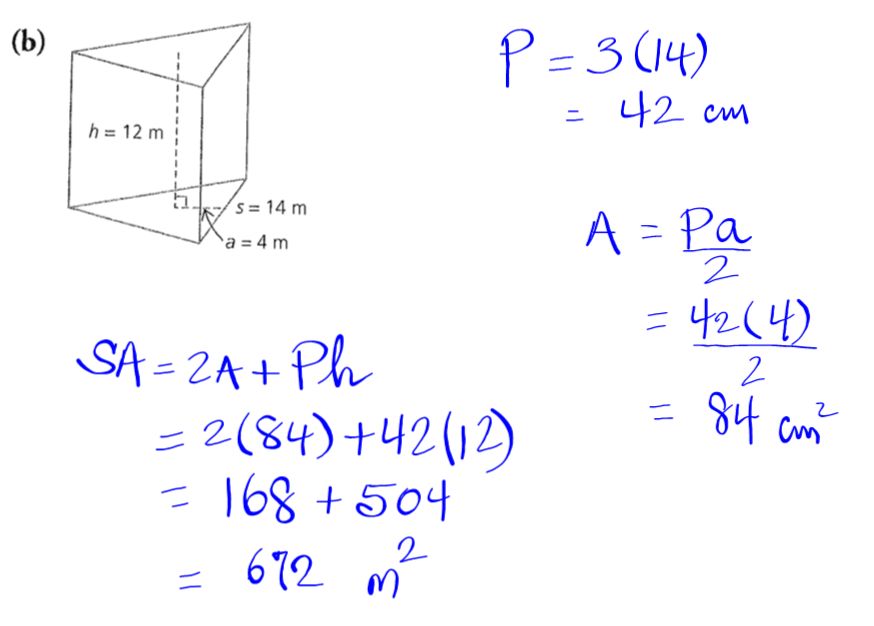 (b)
h = 12 m
s = 14 m
a = 4 m
P = 3(14)
= 42 cm
A = Pa/2
= 42(4)/2
= 84 cm²
SA = 2A + Ph
= 2(84) + 42(12)
= 168 + 504
= 672 m²